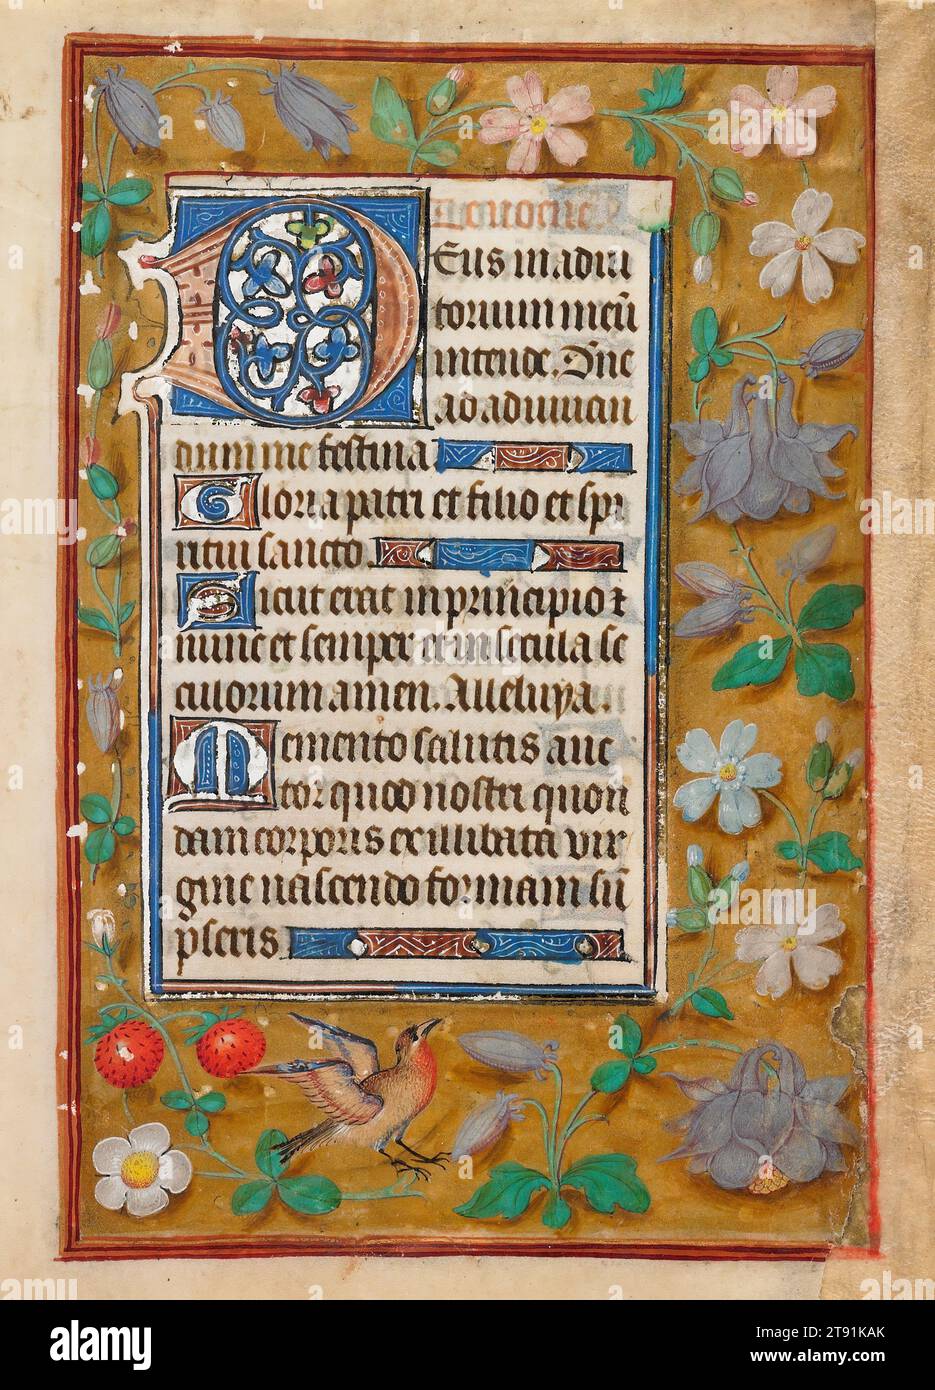 Deus in adiu
torium meū
intende. Dn̄e
ad adiuuan
dum me festina
Gloria patri et filio et spi
ritui sancto.
Sicut erat in principio ⁊
nunc et semper et in secula se
culorum amen. Alleluya.
Memento salutis auc
tor quod nostri quon
dam corporis ex illibata vir
gine nascendo formam sū
pseris
alamy
Image ID: 2T91KAK
www.alamy.com